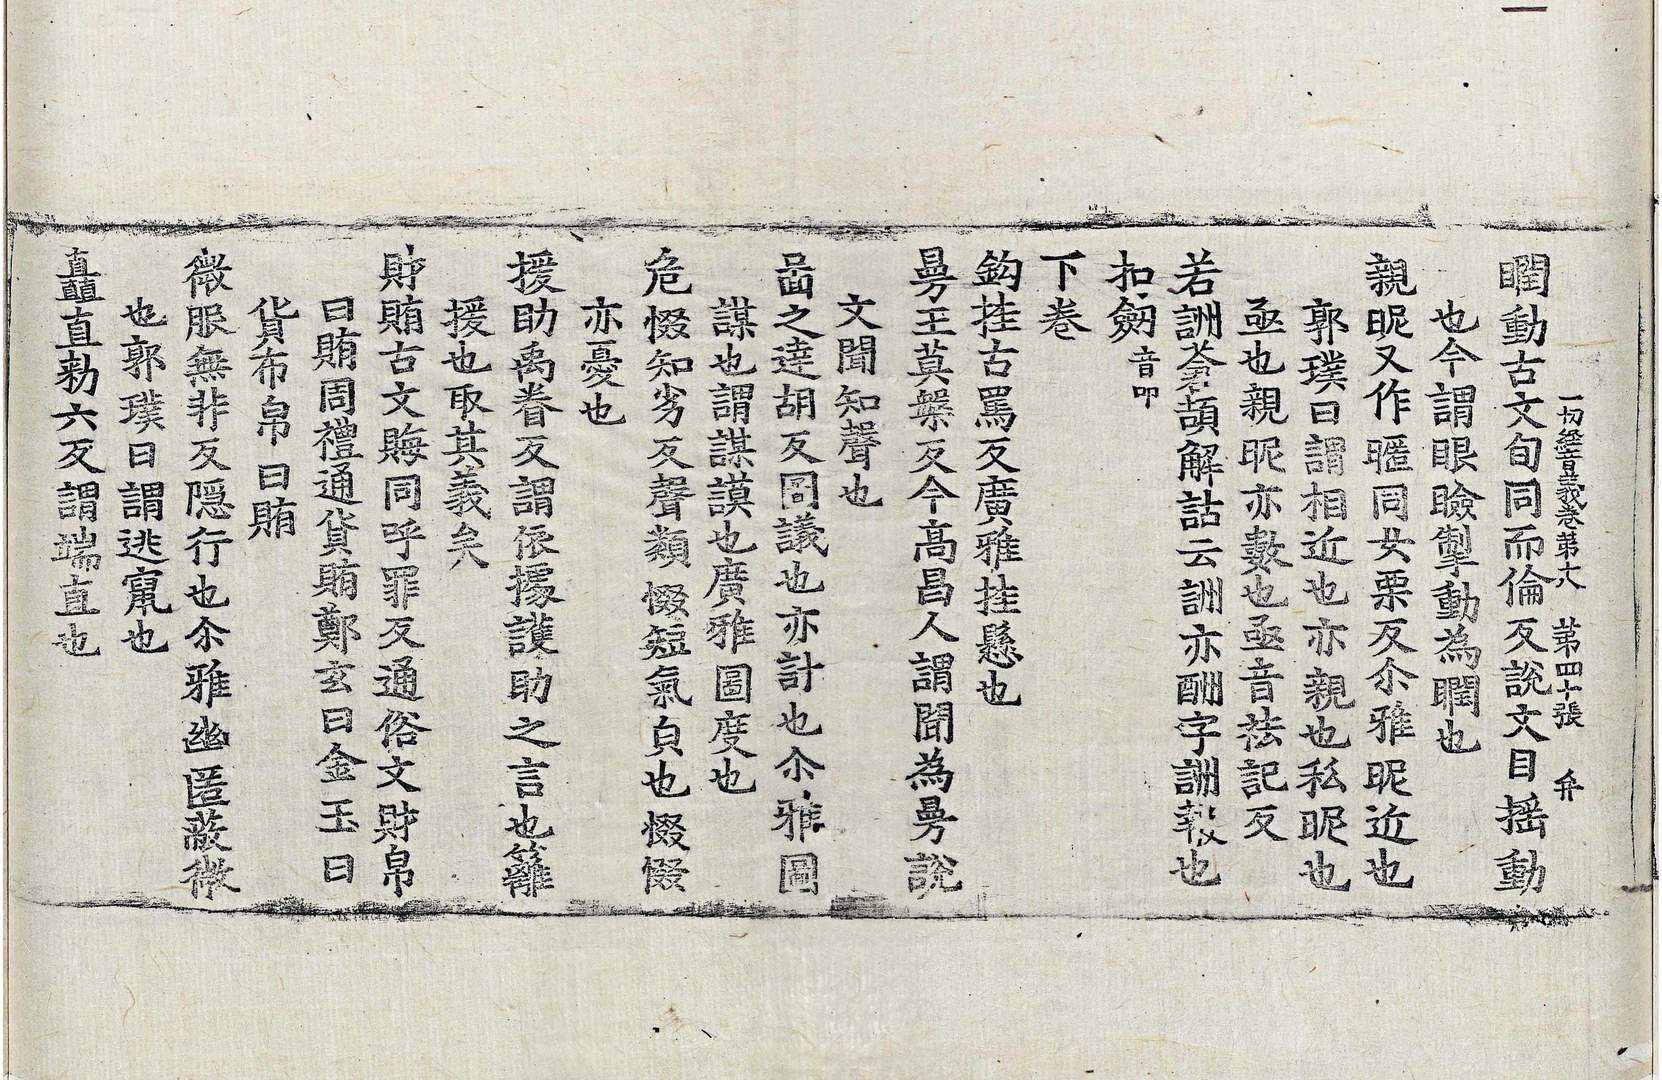 一切經音義卷第十六　第四十張　弁
瞤動古文旬同而倫反說文目搖動
也今謂眼瞼掣動為瞤也
親昵又作暱同女栗反尒雅昵近也
郭璞曰謂相近也亦親也私昵也
亟也親昵亦數也亟音祛記反
若詶蒼頡解詁云詶亦酬字詶報也
扣劒音叩
下卷
鈎挂古罵反廣雅挂懸也
曼王莫槃反今高昌人謂聞為曼說
文聞知聲也
啚之達胡反同議也亦計也尒雅圖
謀也謂謀謨也廣雅圖度也
危惙知劣反聲類惙短氣皃也惙惙
亦憂也
援助禹眷反謂依據護助之言也籬
援也取其義矣
財賄古文賄同呼罪反通俗文財帛
曰賄周禮通貨賄鄭玄曰金玉曰
貨布帛曰賄
微服無非反隱行也尒雅幽匿蔽微
也郭璞曰謂逃竄也
矗直勑六反謂端直也